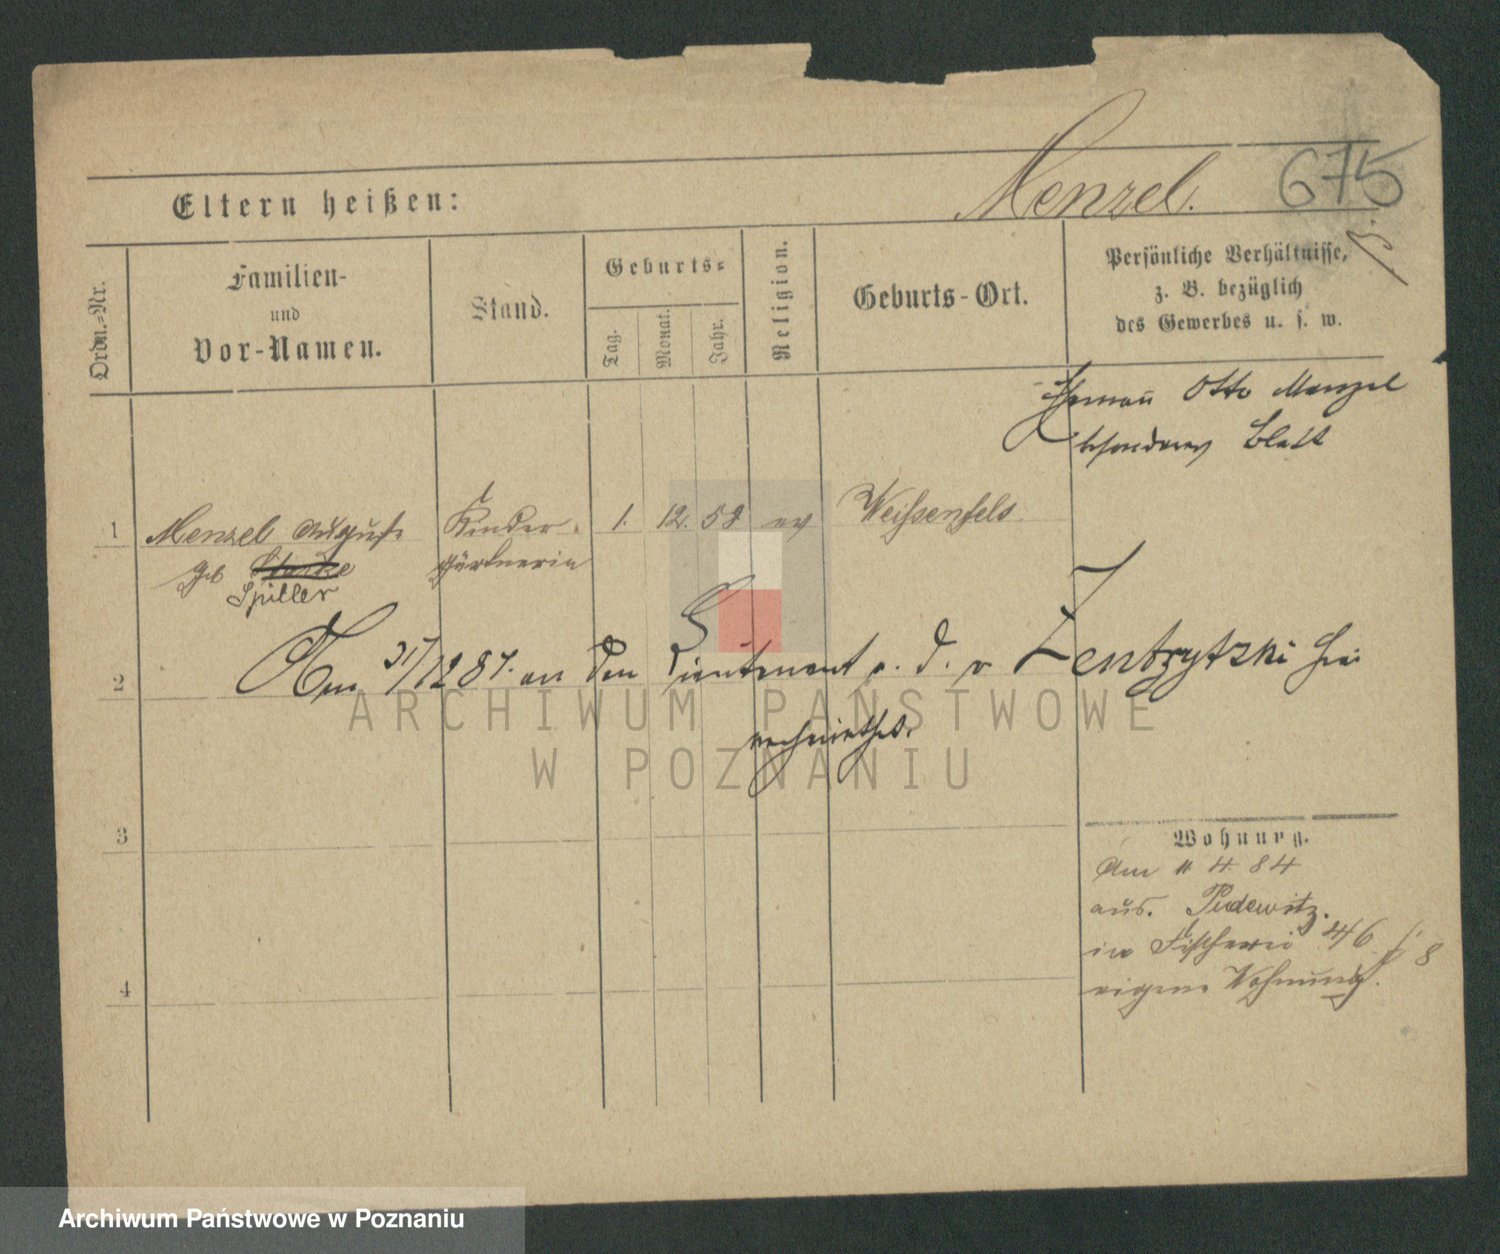 Menzel. 675
Eltern heißen:
Ordn.-Nr.
Familien-
und
Vor-Namen.
Stand.
Geburts-
Tag.
Monat.
Jahr.
Religion.
Geburts-Ort.
Persönliche Verhältnisse,
z. B. bezüglich
des Gewerbes u. s. w.
Otto Menzel
besonderes Blatt
1 Menzel Auguste Kinder- 1. 12. 58 ev Weißenfels
geb Starke gärtnerin
Spiller
2 Am 31/12 87. an den Lieutenant a. D. v Zentzytzki
3
Wohnung.
Am 11 4. 84
aus. Pudewitz.
in Fischerei 46
4 eigene Wohnung.
ARCHIWUM PAŃSTWOWE
W POZNANIU
Archiwum Państwowe w Poznaniu